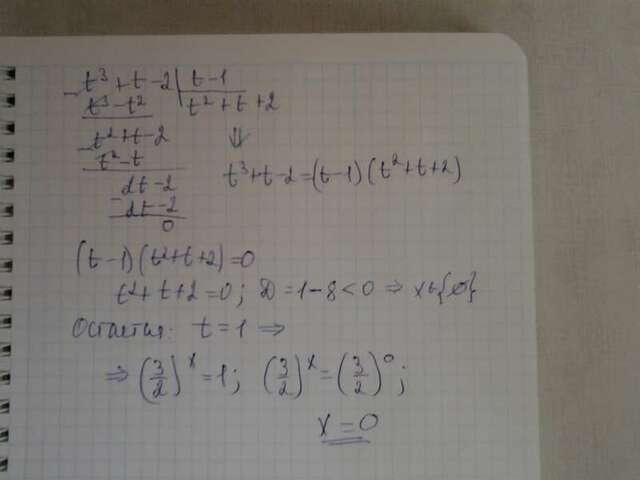 t³ + t - 2 | t - 1
t³ - t² | t² + t + 2
t² + t - 2
t² - t
⇓
t³ + t - 2 = (t - 1)(t² + t + 2)
2t - 2
2t - 2
0
(t - 1)(t² + t + 2) = 0
t² + t + 2 = 0; D = 1 - 8 < 0 ⇒ x ∈ {∅}
Остаётся: t = 1 ⇒
⇒ (3/2)^x = 1; (3/2)^x = (3/2)^0;
x = 0